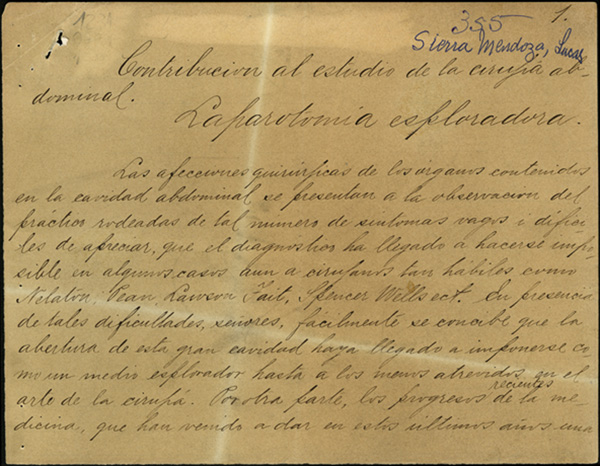 1
355
1.
Sierra Mendoza, Lucas
Contribucion al estudio de la cirujía ab-
dominal.
Laparotomía esploradora.
Las afecciones quirúrjicas de los órganos contenidos
en la cavidad abdominal se presentan a la observacion del
práctico rodeadas de tal número de síntomas vagos i difíci-
les de apreciar, que el diagnóstico ha llegado a hacerse impo-
sible en algunos casos aun a cirujanos tan hábiles como
Nelaton, Pean Lawson Tait, Spencer Wells ect. En presencia
de tales dificultades, señores, fácilmente se concibe que la
abertura de esta gran cavidad haya llegado a imponerse co
mo un medio esplorador hasta a los menos atrevidos en el
arte de la cirujía. Por otra parte, los progresos recientes de la me-
dicina, que han venido a dar en estos últimos años una